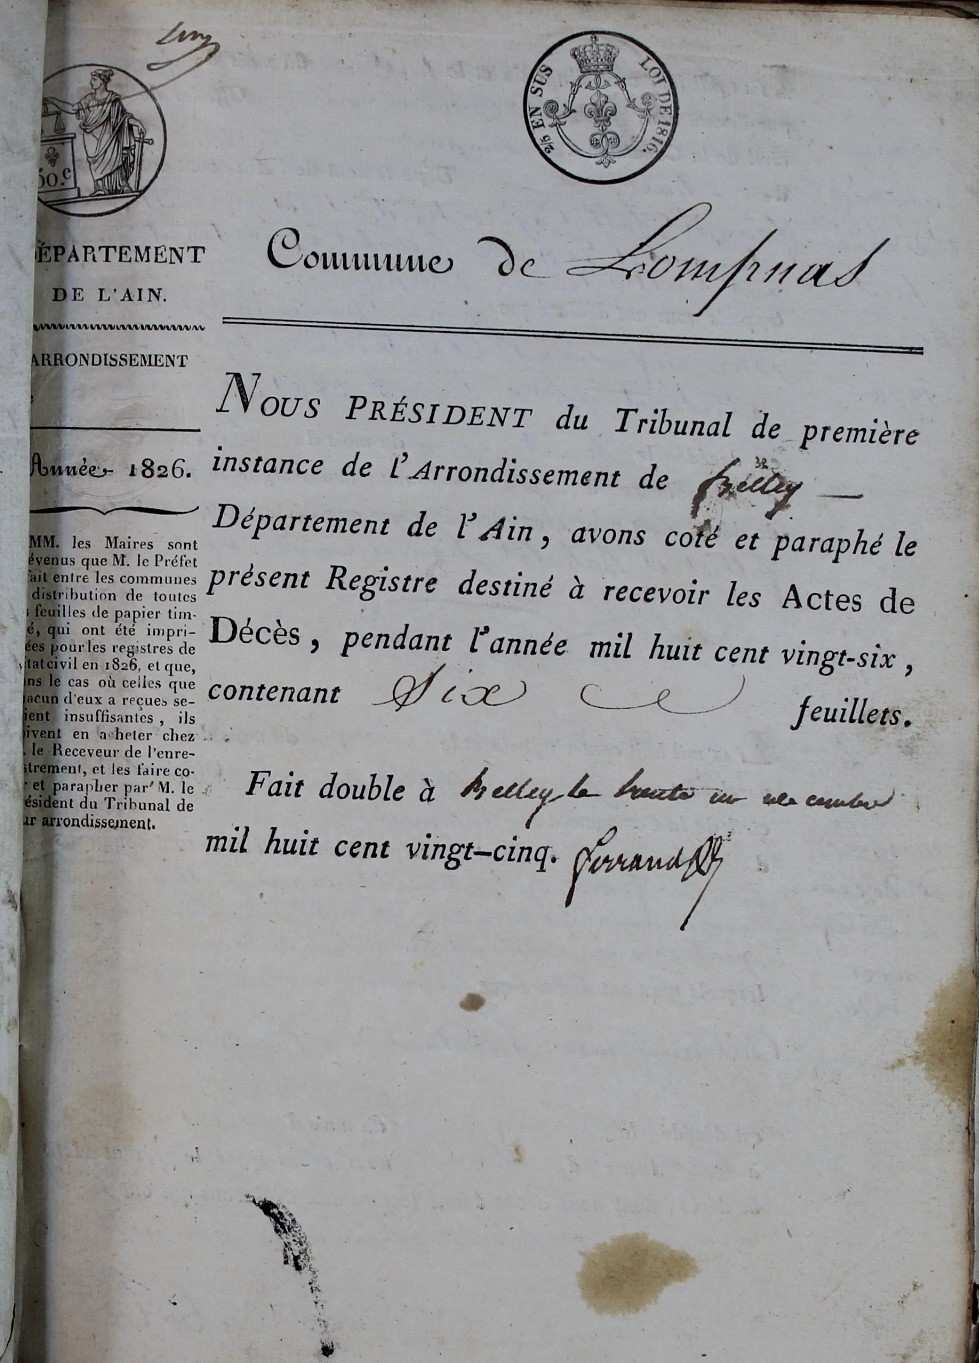 50.c
2/5 EN SUS
LOI DE 1816.
DÉPARTEMENT
DE L'AIN.
ARRONDISSEMENT
Année 1826.
MM. les Maires sont
évenus que M. le Préfet
ait entre les communes
distribution de toutes
feuilles de papier tim-
é, qui ont été impri-
ées pour les registres de
tat civil en 1826, et que,
ns le cas où celles que
acun d'eux a reçues se-
ient insuffisantes, ils
ivent en acheter chez
le Receveur de l'enre-
strement, et les faire co-
et parapher par M. le
ésident du Tribunal de
ur arrondissement.
Commune de Lompnas
NOUS PRÉSIDENT du Tribunal de première
instance de l'Arrondissement de Belley
Département de l'Ain, avons coté et paraphé le
présent Registre destiné à recevoir les Actes de
Décès, pendant l'année mil huit cent vingt-six,
contenant Six feuillets.
Fait double à Belley le trente un décembre
mil huit cent vingt-cinq. Ferrand